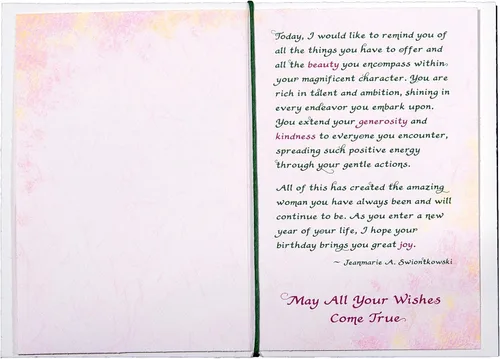 Today, I would like to remind you of
all the things you have to offer and
all the beauty you encompass within
your magnificent character. You are
rich in talent and ambition, shining in
every endeavor you embark upon.
You extend your generosity and
kindness to everyone you encounter,
spreading such positive energy
through your gentle actions.
All of this has created the amazing
woman you have always been and will
continue to be. As you enter a new
year of your life, I hope your
birthday brings you great joy.
~ Jeanmarie A. Swiontkowski
May All Your Wishes
Come True